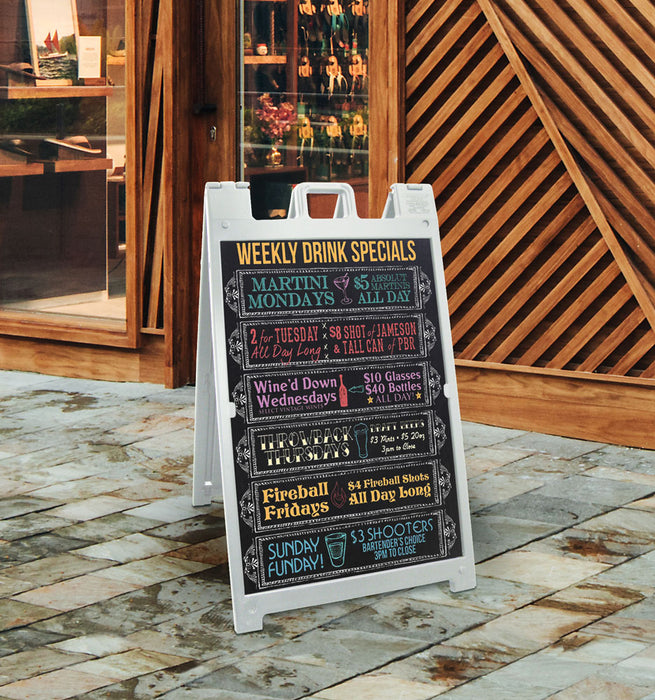 WEEKLY DRINK SPECIALS
MARTINI
MONDAYS
$5 ABSOLUT
MARTINIS
ALL DAY
2 for TUESDAY
All Day Long
$8 SHOT of JAMESON
& TALL CAN of PBR
Wine'd Down
Wednesdays
SELECT VINTAGE WINES
$10 Glasses
$40 Bottles
ALL DAY!
THROWBACK
THURSDAYS
DRAFT BEERS
$3 Pints • $5 20oz
3pm to Close
Fireball
Fridays
$4 Fireball Shots
All Day Long
SUNDAY
FUNDAY!
$3 SHOOTERS
BARTENDER'S CHOICE
3PM TO CLOSE